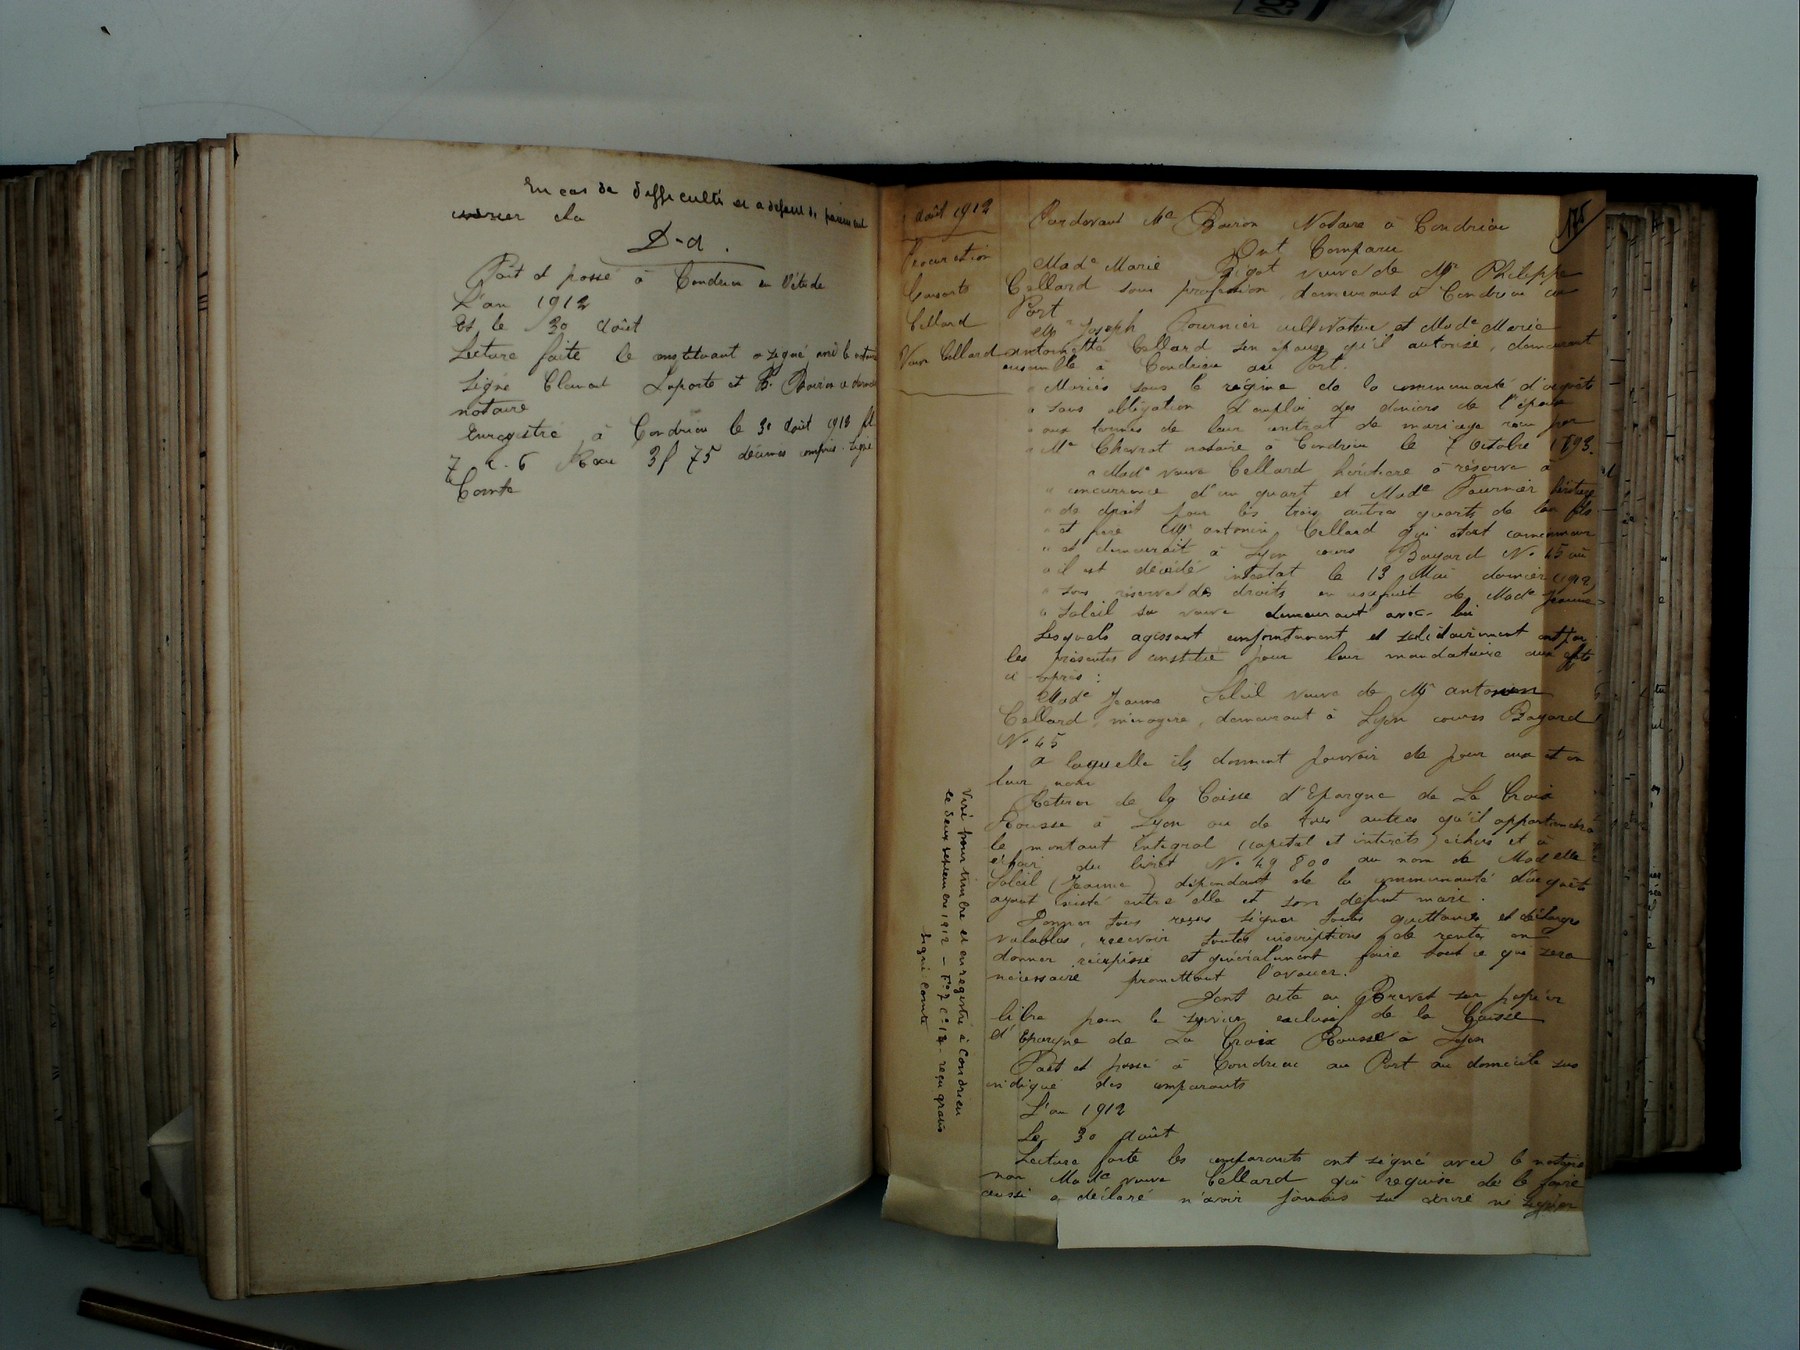 En cas de difficulté et a defaut de paiement
verser cla
D-d.
Fait et passé à Condrieu en l'étude
L'an 1912
Et le 30 août
Lecture faite le constituant a signé avec le notaire
Signé Laporte et B. Boiron ce dernier
notaire
Enregistré à Condrieu le 3 août 1912 fo
7 c. 6 Reçu 3f 75 décimes compris. Signé
Comte
175
août 1912
Procuration
Consorts
Cellard
Veuve Cellard
Pardevant Me Boiron Notaire à Condrieu
Ont Comparu
Made Marie Gigot veuve de Mr Philippe
Cellard sans profession, demeurant à Condrieu au
Port
Mr Joseph Fournier cultivateur et Made Marie
antoinette Cellard son épouse qu'il autorise, demeurant
ensemble à Condrieu au Port.
" Mariés sous le régime de la communauté d'acquêts
" sans obligation d'emploi des deniers de l'épouse
" aux termes de leur contrat de mariage reçu par
" Me Chevrot notaire à Condrieu le 7 octobre 1893.
" Made veuve Cellard héritière à réserve à
" concurrence d'un quart et Made Fournier héritière
" de droit pour les trois autres quarts de leur fils
" et frère Mr antonin Cellard qui était camionneur
" et demeurait à Lyon cours Bayard No 45 où
" il est décédé intestat le 13 Mai dernier (1912)
" sous réserve des droits en usufruit de Made Jeanne
" Soleil sa veuve demeurant avec lui
Lesquels agissant conjointement et solidairement ont par
les présentes constitué pour leur mandataire aux effets
ci-après :
Made Jeanne Soleil veuve de Mr antonin
Cellard, ménagère, demeurant à Lyon cours Bayard
No 45
A laquelle ils donnent pouvoir de pour eux et en
leur nom
Retirer de la Caisse d'Epargne de La Croix
Rousse à Lyon ou de tous autres qu'il appartiendra
le montant intégral (capital et intérêts) échus et à
échoir du livret No 49 800 au nom de Madelle
Soleil (Jeanne) dépendant de la communauté d'acquêts
ayant existé entre elle et son défunt mari.
Donner tous reçus signer toutes quittances et décharges
valables, recevoir toutes inscriptions de rentes en
donner récépissé et généralement faire tout ce que sera
nécessaire promettant l'avouer.
Dont acte en Brevet sur papier
libre pour le service exclusif de la Caisse
d'Epargne de La Croix Rousse à Lyon
Fait et passé à Condrieu au Port au domicile sus
indiqué des comparants
L'an 1912
Le 30 août
Lecture faite les comparants ont signé avec le notaire
non Made veuve Cellard qui requise de le faire
aussi a déclaré n'avoir jamais su écrire ni signer
Visé pour timbre et enregistré à Condrieu
le deux septembre 1912 - Fo 7 Co 12 - reçu gratis
signé : Comte